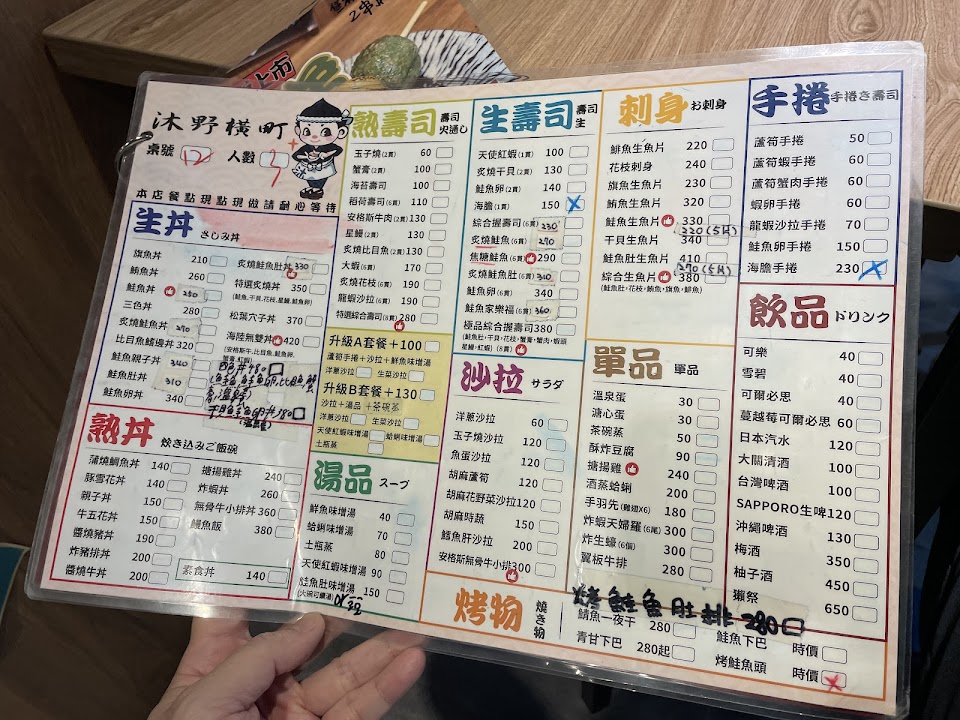 上市
沐野橫町
桌號 12 人數 3
本店餐點現點現做請耐心等待
生丼 さしみ丼
旗魚丼 210
鮪魚丼 260
鮭魚丼 250
三色丼 280
炙燒鮭魚丼 290
比目魚鰭邊丼 320
鮭魚親子丼 340
鮭魚肚丼 310
鮭魚卵丼 340
炙燒鮭魚肚丼 330
特選炙燒丼 350
(鮭魚,干貝,花枝,星鰻,鮭魚卵)
松葉穴子丼 370
海陸無雙丼 420
(安格斯牛,比目魚,鮭魚卵,
蟹膏,紅蝦)
熟丼 炊き込みご飯碗
蒲燒鯛魚丼 140
豚雪花丼 140
親子丼 150
牛五花丼 150
醬燒豬丼 190
炸豬排丼 200
醬燒牛丼 200
搪揚雞丼 240
炸蝦丼 260
無骨牛小排丼 360
鰻魚飯 380
素食丼 140
熟壽司 壽司 火通し
玉子燒(2貫) 60
蟹膏(2貫) 100
海苔壽司 100
稻荷壽司(6貫) 110
安格斯牛肉(2貫) 130
星鰻(2貫) 130
炙燒比目魚(2貫) 130
大蝦(6貫) 170
炙燒花枝(6貫) 190
龍蝦沙拉(6貫) 190
特選綜合壽司(8貫) 280
升級A套餐+100
蘆筍手捲+沙拉+鮮魚味增湯
洋蔥沙拉 生菜沙拉
升級B套餐+130
沙拉+湯品 +茶碗蒸
洋蔥沙拉 生菜沙拉
天使紅蝦味增湯 蛤蜊味增湯
土瓶蒸
湯品 スープ
鮮魚味增湯 40
蛤蜊味增湯 70
土瓶蒸 80
天使紅蝦味增湯 90
鮭魚肚味增湯 150
(火碗可續湯)
生壽司 壽司 生
天使紅蝦(1貫) 100
炙燒干貝(2貫) 130
鮭魚卵(2貫) 140
海膽(1貫) 150
綜合握壽司(6貫) 230
炙燒鮭魚(6貫) 270
焦糖鮭魚(6貫) 290
炙燒鮭魚肚(6貫) 310
鮭魚卵(6貫) 340
鮭魚家樂福(6貫) 360
極品綜合握壽司 380
(鮭魚肚,干貝,花枝,蟹膏,蟹肉,蝦頭
星鰻,紅蝦) (8貫)
沙拉 サラダ
洋蔥沙拉 60
玉子燒沙拉 120
魚蛋沙拉 120
胡麻蘆筍 120
胡麻花野菜沙拉 120
胡麻時蔬 150
鱈魚肝沙拉 200
安格斯無骨牛小排 300
刺身 お刺身
鯡魚生魚片 220
花枝刺身 240
旗魚生魚片 230
鮪魚生魚片 320
鮭魚生魚片 330
220(5片)
干貝生魚片 340
鮭魚肚生魚片 410
270(5片)
綜合生魚片 380
(鮭魚肚,花枝,鮪魚,旗魚,鯡魚)
單品 單品
溫泉蛋 30
溏心蛋 30
茶碗蒸 50
酥炸豆腐 90
搪揚雞 240
酒蒸蛤蜊 200
手羽先(雞翅X6) 180
炸蝦天婦羅(6尾) 300
炸生蠔(6個) 300
翼板牛排 280
手捲 手捲き壽司
蘆筍手捲 50
蘆筍蝦手捲 60
蘆筍蟹肉手捲 60
蝦卵手捲 60
龍蝦沙拉手捲 70
鮭魚卵手捲 150
海膽手捲 230
飲品 ドリンク
可樂 40
雪碧 40
可爾必思 40
蔓越莓可爾必思 60
日本汽水 120
大關清酒 100
台灣啤酒 100
SAPPORO生啤 120
沖繩啤酒 130
梅酒 350
柚子酒 450
獺祭 650
烤物 燒き物
烤鮭魚肚排 280
鯖魚一夜干 280
青甘下巴 280起
鮭魚下巴 時價
烤鮭魚頭 時價